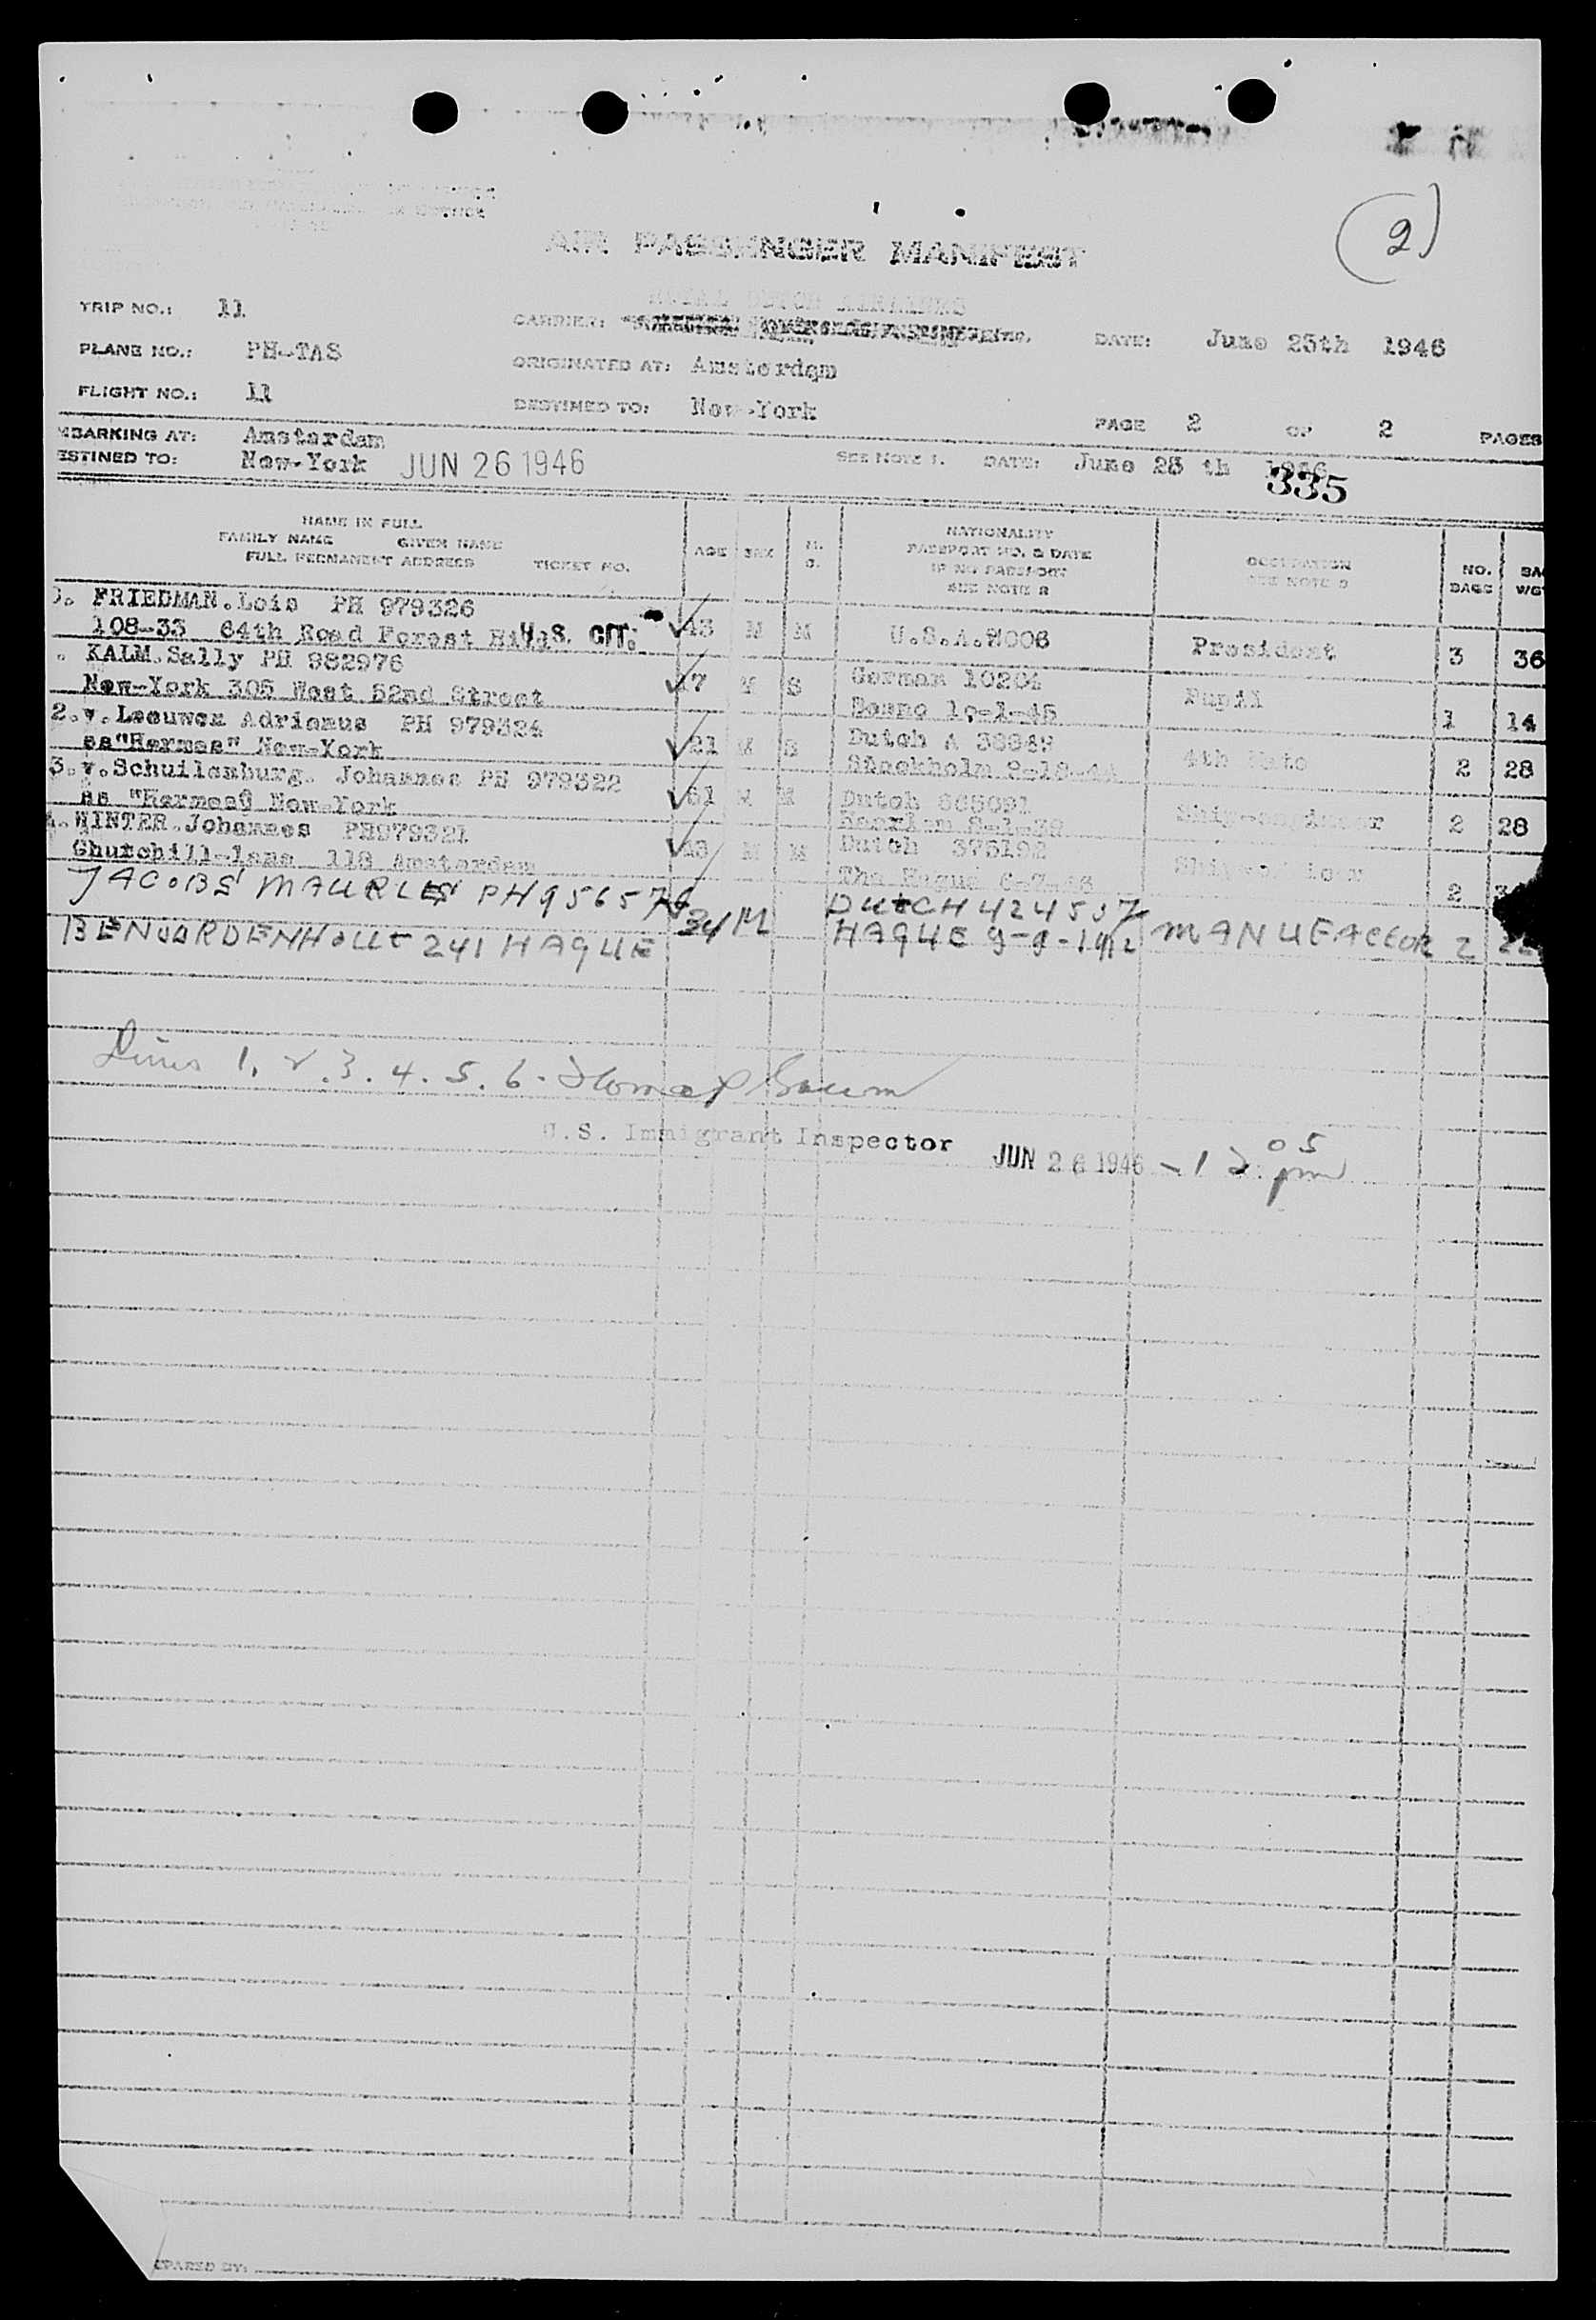 (2)
AIR PASSENGER MANIFEST
TRIP NO.: 11
ROYAL DUTCH AIRLINES
CARRIER:
DATE: June 25th 1946
PLANE NO.: PH-TAS
ORIGINATED AT: Amsterdam
FLIGHT NO.: 11
DESTINED TO: New-York
PAGE 2 OF 2 PAGES
MBARKING AT: Amsterdam
ESTINED TO: New-York JUN 26 1946
SEE NOTE 1. DATE: June 25 th 1946
335
NAME IN FULL
FAMILY NAME GIVEN NAME
FULL PERMANENT ADDRESS TICKET NO.
AGE SEX M. S.
NATIONALITY
PASSPORT NO. & DATE
IF NO PASSPORT
SEE NOTE 2
OCCUPATION
SEE NOTE 3
NO. BAGS
BAG WGT
0. FRIEDMAN.Lois PH 979326
108-33 64th Road Forest Hi U.S. CIT. 43 M M U.S.A. President 3 36
. KALM.Sally PH 982976 German 10204
New-York 305 West 52nd Street 17 M S Pupil 1 14
2.v.Leeuwen Adrianus PH 979324 Dutch A
ss"Hermes" New-York 21 M S Stockholm 4th Mate 2 28
3.v.Schuilenburg. Johannes PH 979322 Dutch
ss "Hermes" New-York 51 M M Haarlem Ship-engineer 2 28
4.WINTER.Johannes PH979321 Dutch 375192
Churchill-lane 118 Amsterdam 43 M M The Hague 2
JACOBS MAURLES PH956576 DUtCH 424537
BENUORDENHOUt 241 HAgUE 34 M HAgUE 9-9-1912 MANUFACtOR 2 22
Lines 1. 2. 3. 4. 5. 6.
U.S. Immigrant Inspector JUN 26 1946 - 12 05 pm
EPARED BY: